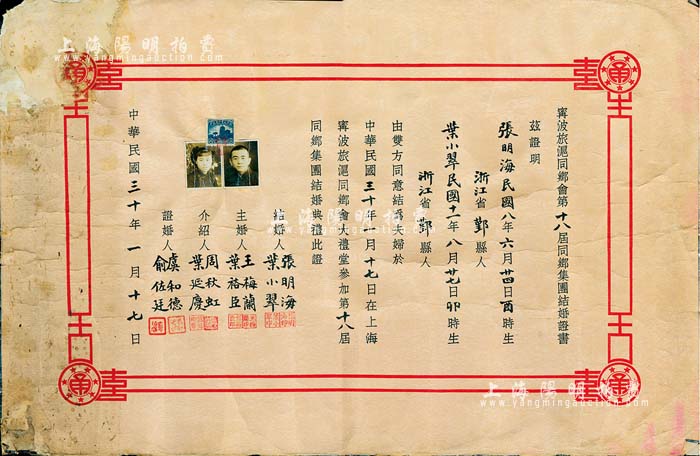 上海陽明拍賣
www.yangmingauction.com
寧波旅滬同鄉會第十八屆同鄉集團結婚證書
茲證明
張明海民國八年六月廿四日酉時生
浙江省鄞縣人
葉小翠民國十一年八月廿七日卯時生
浙江省鄞縣人
由雙方同意結為夫婦於
中華民國三十年一月十七日在上海
寧波旅滬同鄉會大禮堂參加第十八屆
同鄉集團結婚典禮此證
結婚人 張明海
葉小翠
主婚人 王梅蘭
葉裕臣
介紹人 周秋虹
葉延慶
證婚人 虞和德
俞佐廷
中華民國三十年一月十七日
上海陽明拍賣
www.yangmingauction.com